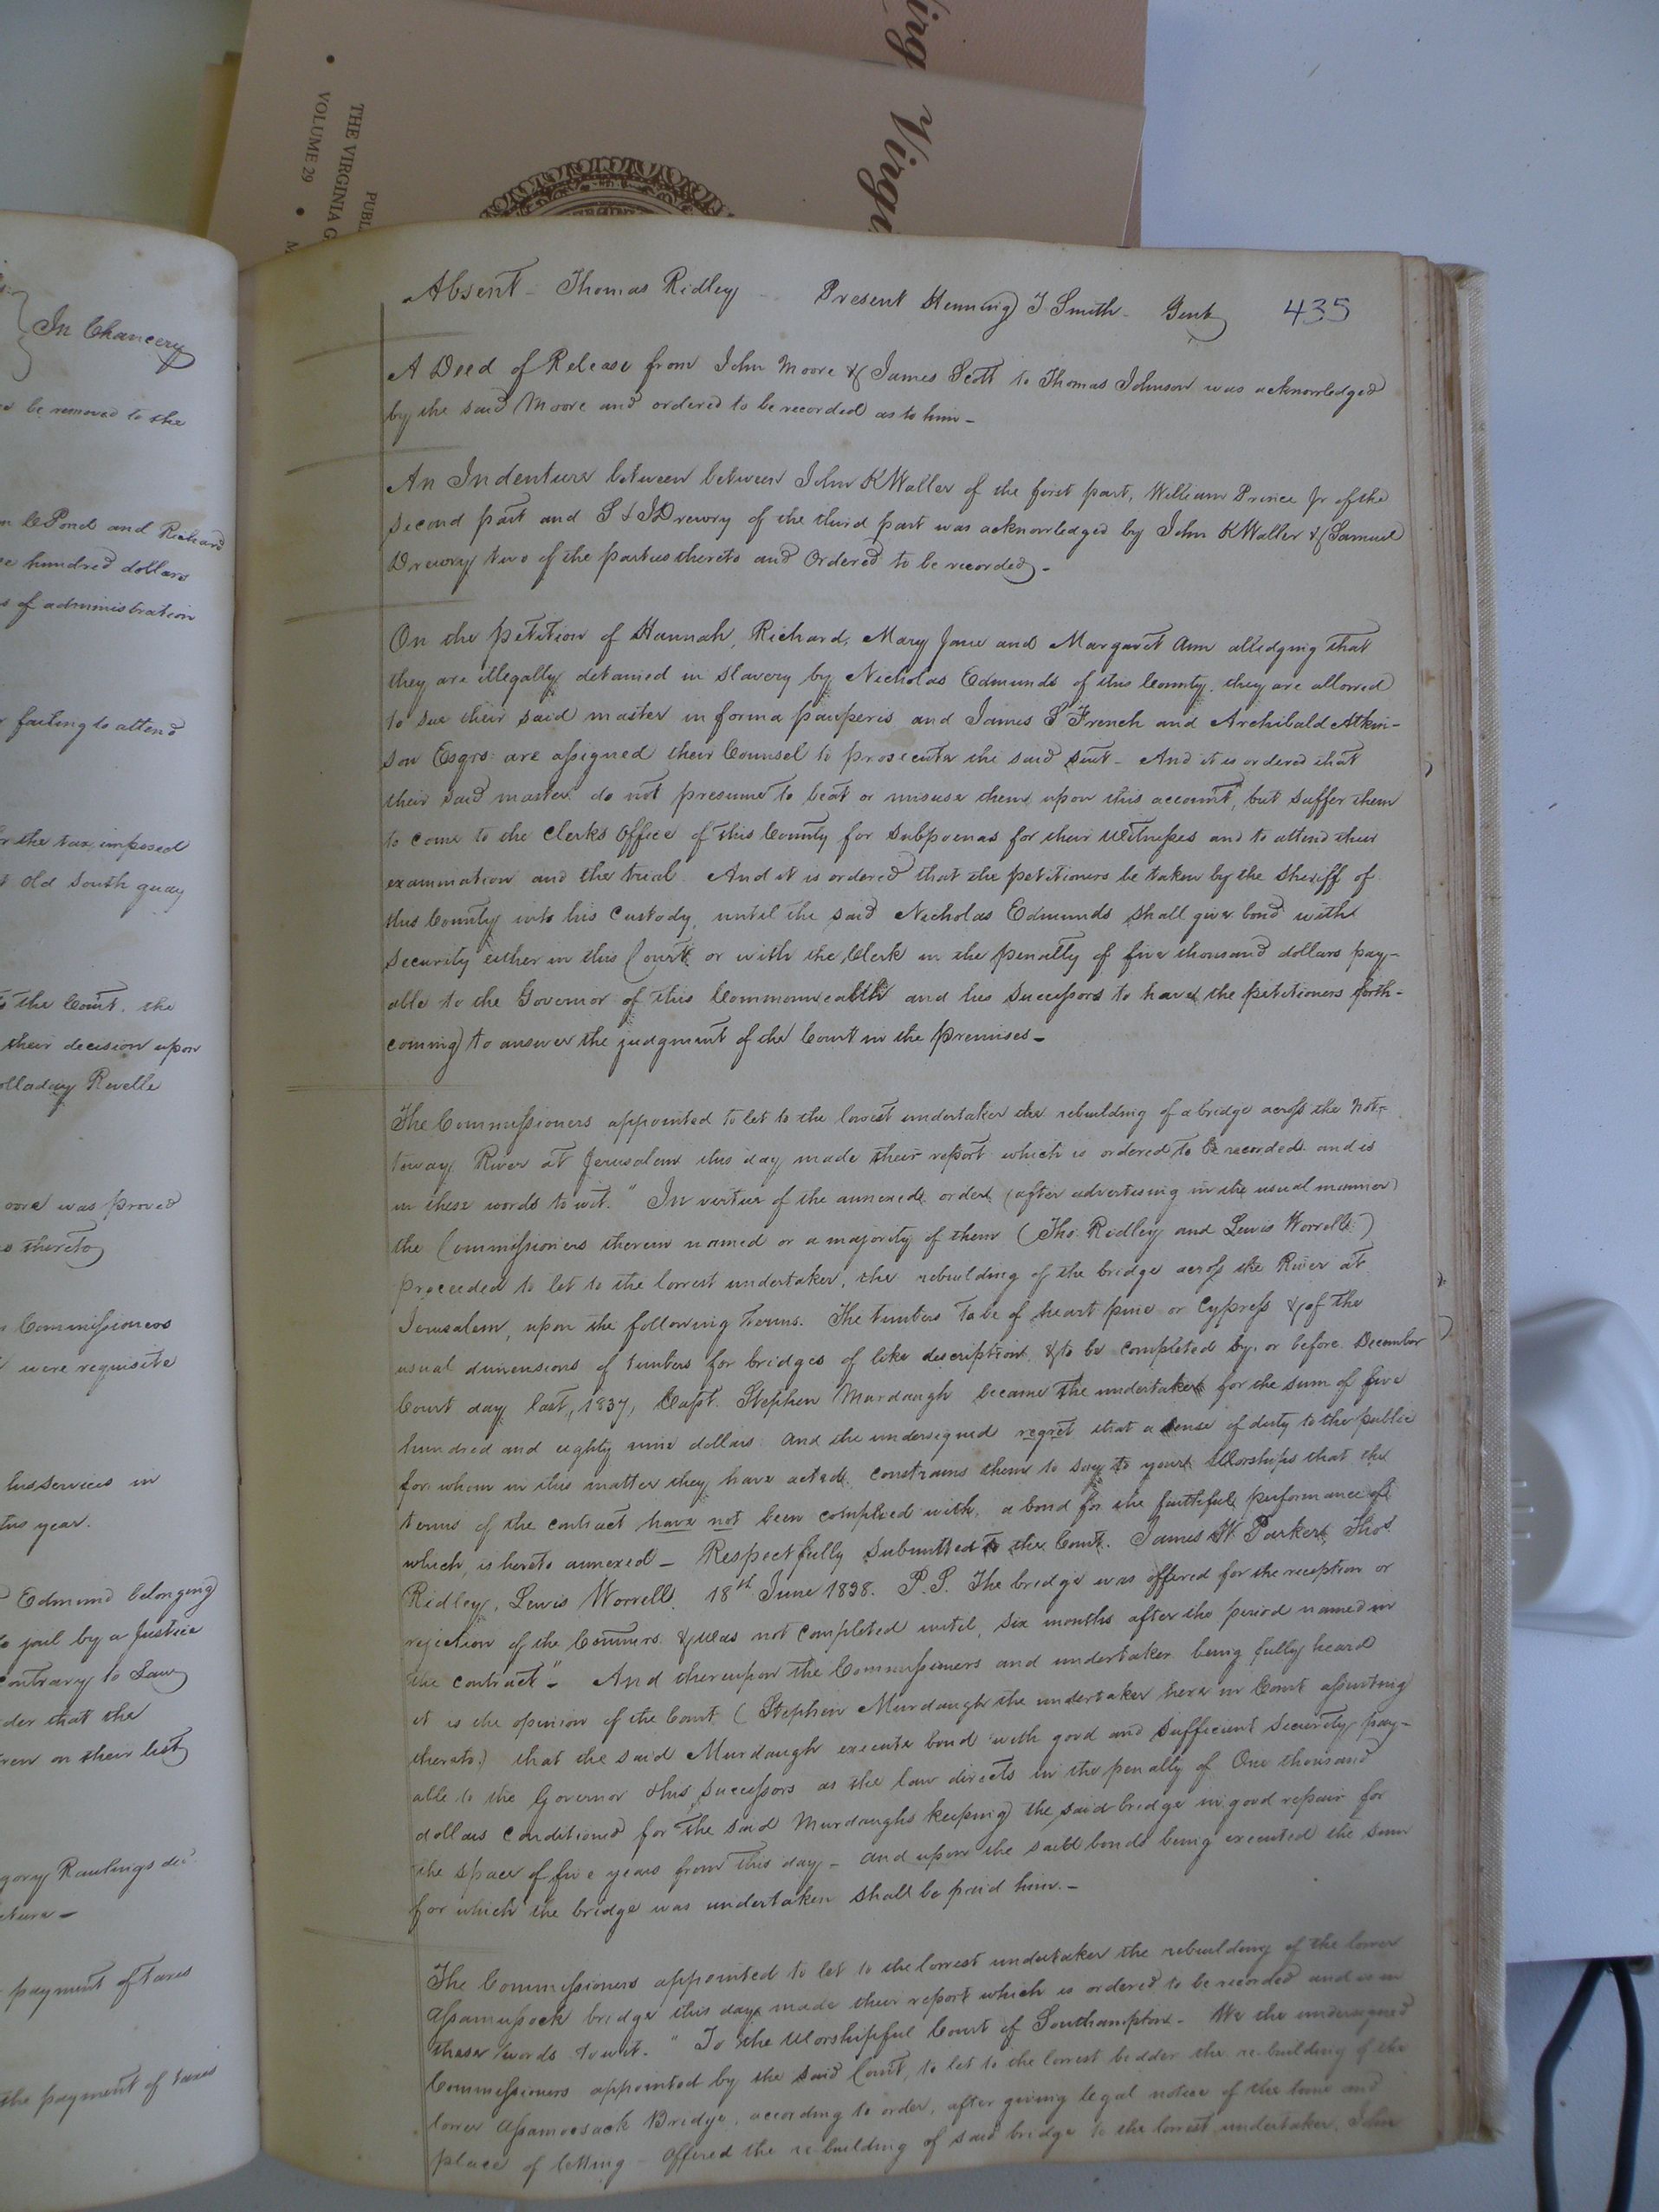 Virg
Virgi
THE VIRGINIA G
VOLUME 29 • M
PUBL
In Chancery
be removed to the
Pond and Richard
hundred dollars
of administration
failing to attend
the tax imposed
Old South quay
the Court, the
their decision upon
olladay Revelle
was proved
thereto
Commissioners
were requisite
his services in
this year.
Edmund belonging
jail by a Justice
contrary to Law
der that the
on their list
gory Rawlings dec
payment of taxes
the payment of taxes
Absent - Thomas Ridley - Present Henning J Smith - Gent 435
A Deed of Release from John Moore & James Scott to Thomas Johnson was acknowledged
by the said Moore and ordered to be recorded as to him -
An Indenture between between John K Waller of the first part, William Prince Jr of the
second part and S & J Drewry of the third part was acknowledged by John K Waller & Samuel
Drewry two of the parties thereto and Ordered to be recorded -
On the petition of Hannah, Richard, Mary Jane and Margaret Ann alledging that
they are illegally detained in slavery by Nicholas Edmunds of this County, they are allowed
to sue their said master in forma pauperis and James S French and Archibald Atkin-
son Esqrs: are assigned their Counsel to prosecute the said suit - And it is ordered that
their said master do not presume to beat or misuse them upon this account, but suffer them
to come to the Clerks Office of this County for subpoenas for their Witnesses and to attend their
examination and the trial. And it is ordered that the petitioners be taken by the Sheriff of
this County into his Custody, until the said Nicholas Edmunds shall give bond with
security either in this Court or with the Clerk in the penalty of five thousand dollars pay-
able to the Governor of this Commonwealth and his Successors to have the petitioners forth-
coming to answer the judgment of the Court in the premises -
The Commissioners appointed to let to the lowest undertaker the rebuilding of a bridge across the Not-
toway River at Jerusalem this day made their report which is ordered to be recorded and is
in these words to wit. "In virtue of the annexed order (after advertising in the usual manner)
the Commissioners therein named or a majority of them (Tho: Ridley and Lewis Worrell)
proceeded to let to the lowest undertaker, the rebuilding of the bridge across the River at
Jerusalem, upon the following terms. The timbers to be of heart pine or Cypress & of the
usual dimensions of timbers for bridges of like description, & to be completed by or before December
Court day last, 1837, Capt. Stephen Murdaugh became the undertaker for the sum of five
hundred and eighty nine dollars. And the undersigned regret that a sense of duty to the public
for whom in this matter they have acted, constrains them to say to your Worships that the
terms of the contract have not been complied with, a bond for the faithful performance of
which, is hereto annexed - Respectfully submitted to the Court. James W. Parker, Thos
Ridley, Lewis Worrell. 18th June 1838. P.S. The bridge was offered for the reception or
rejection of the Commrs. & was not completed until, six months after the period named in
the contract" - And thereupon the Commissioners and undertaker being fully heard
it is the opinion of the Court (Stephen Murdaugh the undertaker here in Court assenting
thereto) that the said Murdaugh execute bond with good and sufficient security pay-
able to the Governor & his successors as the law directs in the penalty of One thousand
dollars conditioned for the said Murdaughs keeping the said bridge in good repair for
the space of five years from this day - and upon the said bond being executed the sum
for which the bridge was undertaken shall be paid him. -
The Commissioners appointed to let to the lowest undertaker the rebuilding of the lower
Assamussock bridge this day made their report which is ordered to be recorded and is in
these words to wit. "To the Worshipful Court of Southampton - We the undersigned
Commissioners appointed by the said Court, to let to the lowest bidder the re-building of the
lower Assamoosack Bridge, according to order, after giving legal notice of the time and
place of letting - Offered the re-building of said bridge to the lowest undertaker, John